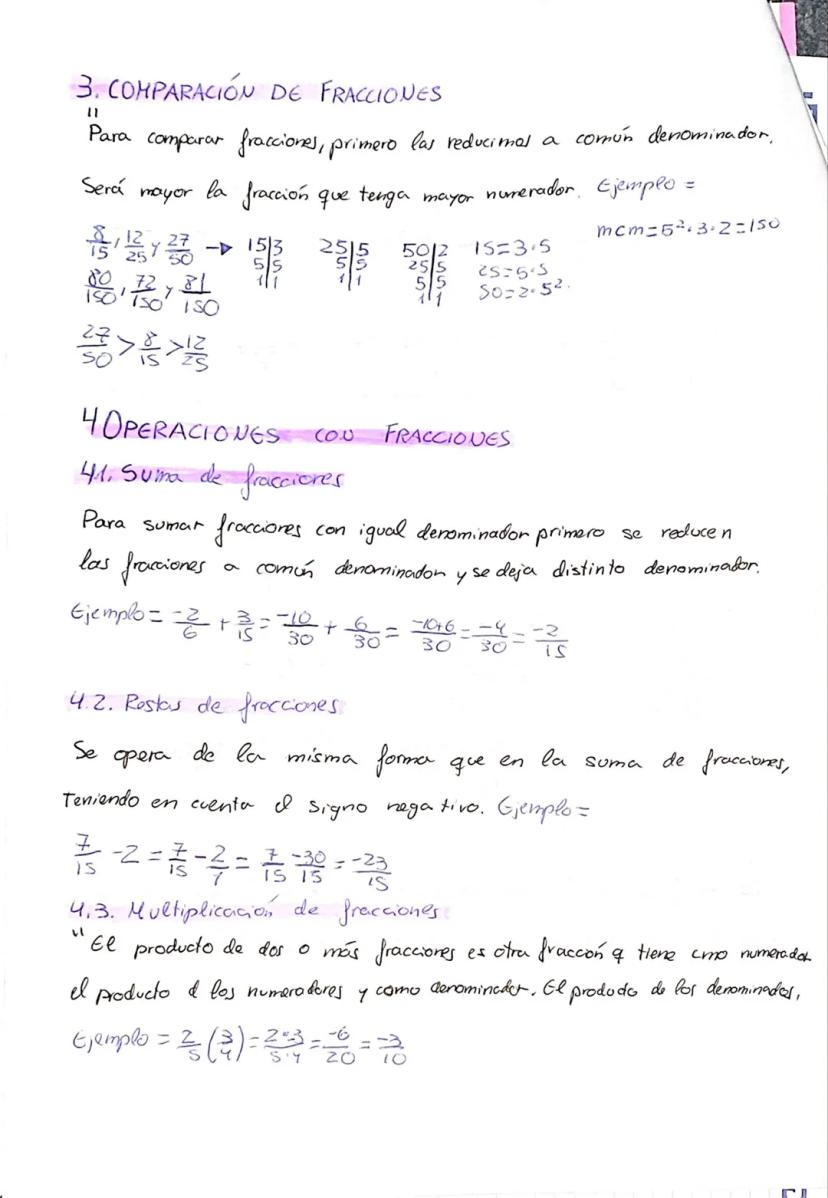 3. COMPARACIÓN DE FRACCIONES
"Para comparar fracciones, primero las reducimos a común denominador.
Será mayor la fracción que tenga mayor numerador. Ejemplo =
8/15, 12/25 y 27/50 → 15|3 25|5 50|2 15=3·5 mcm=5²·3·2=150
5|5 5|5 25|5 25=5·5
1|1 1|1 5|5 50=2·5².
1|1
80/150, 72/150 y 81/150
27/50 > 8/15 > 12/25
4 OPERACIONES CON FRACCIONES
4.1. Suma de fracciones
Para sumar fracciones con igual denominador primero se reducen
las fracciones a común denominador y se deja distinto denominador.
Ejemplo = -2/6 + 3/15 = -10/30 + 6/30 = -10+6/30 = -4/30 = -2/15
4.2. Restas de fracciones
Se opera de la misma forma que en la suma de fracciones,
Teniendo en cuenta el signo negativo. Ejemplo =
7/15 - 2 = 7/15 - 2/1 = 7/15 -30/15 = -23/15
4.3. Multiplicación de fracciones
"El producto de dos o más fracciones es otra fracción q tiene cmo numerador
el producto d los numeradores y como denominador. El producto de los denominados,
Ejemplo = 2/5 (3/4) = 2·3/5·4 = -6/20 = -3/10